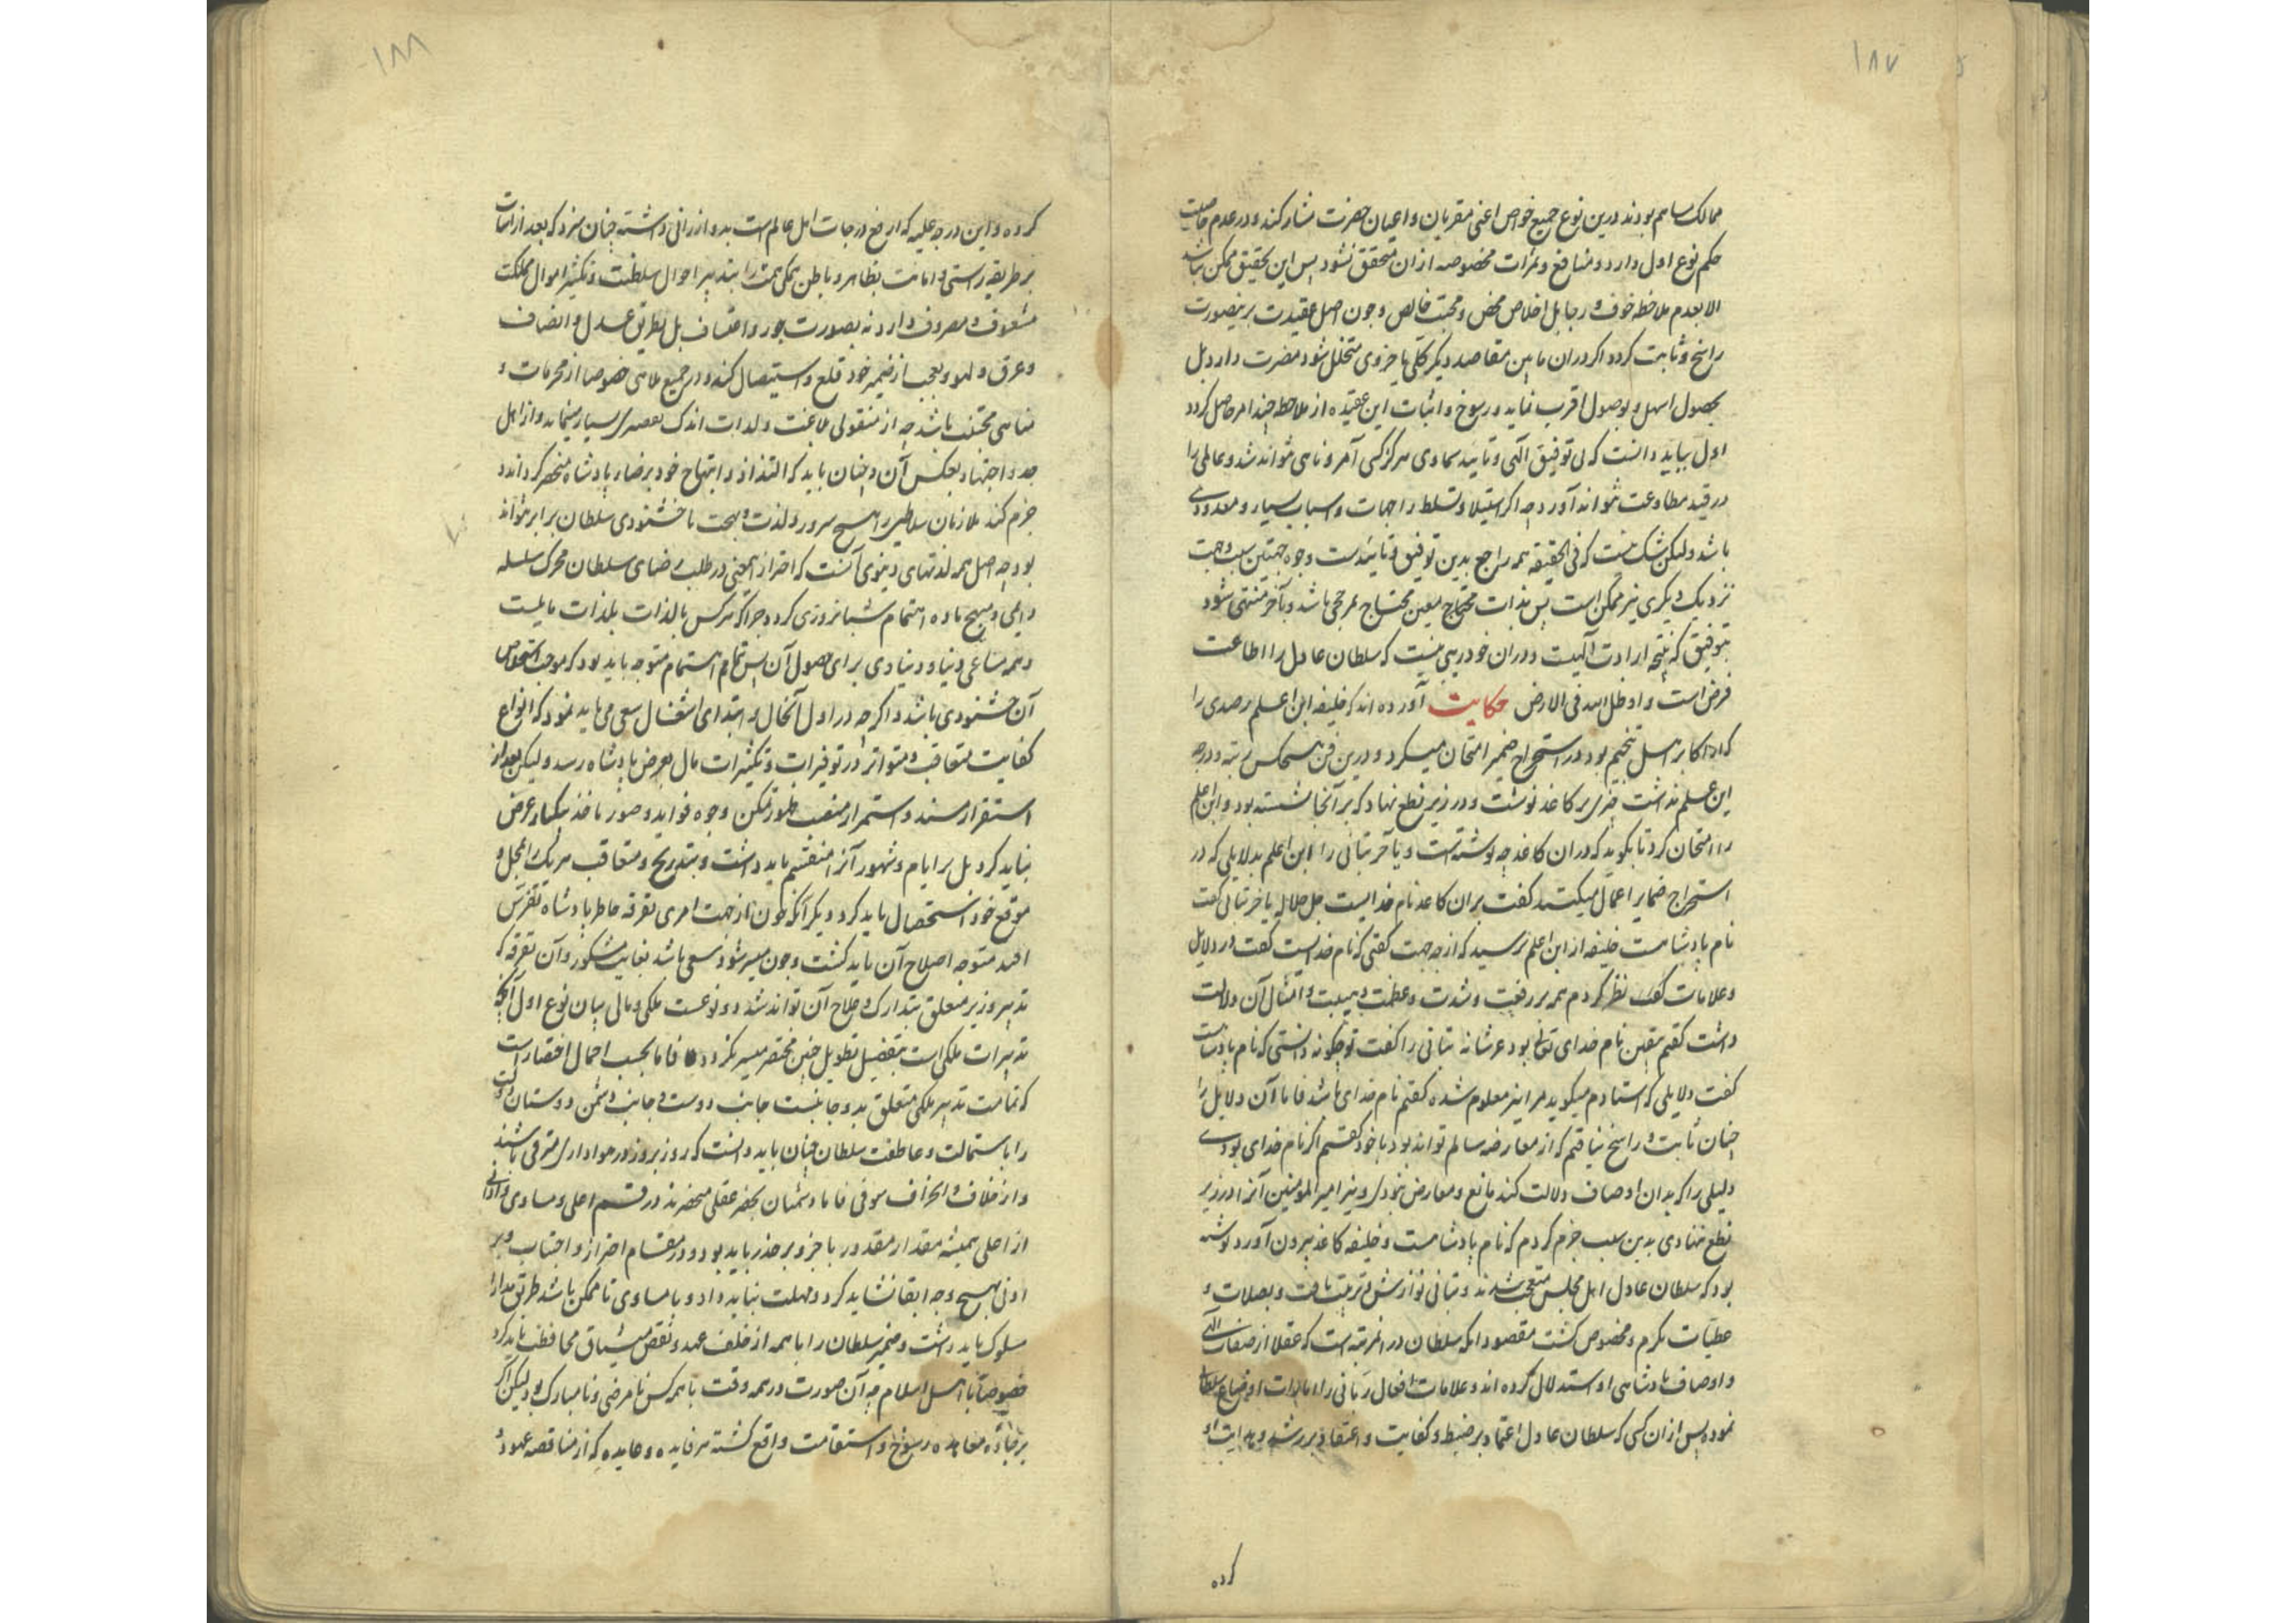 ۱۸۷
ممالک مساهم بودند درین نوع جمیع خواص اعنی مقربان و اعیان حضرت مشارکند و در عدم خاصیت
حکم نوع اول دارد و منافع و ثمرات مخصوصه ازان متحقق نشود پس این تحقیق ممکن نباشد
الا بعدم ملاحظه خوف و رجا بل اخلاص محض و محبت خالص و چون اصل عقیدت برینصورت
راسخ و ثابت کردد اکر دران مابین مقاصد دیکر کلی یا جزوی متخلل شود مضرت دارد بل
بحصول اسهل و بوصول اقرب نماید و رسوخ و اثبات این عقیده از ملاحظه چند امر حاصل کردد
اول بباید دانست که بی توفیق الهی و تایید سماوی هرکز کسی آمر و ناهی نتواند شد و عالمی را
در قید مطاوعت نتواند آورد چه اکر استیلا و تسلط را جهات و اسباب بسیار و معدودی
باشد ولیکن شک نیست که فی الحقیقه همه راجع بدین توفیق و تاییدست و چون جهتین سبب و جهت
نزدیک دیکری نیز ممکن است پس بذات محتاج معین محتاج مرجحی باشد و بآخر منتهی شود
بتوفیق که نتیجه ارادت آلهیست و دران خود ریبی نیست که سلطان عادل را اطاعت
فرض است و او ظل الله فی الارض حکایت آورده اند که خلیفه ابن اعلم رصدی را
که از اکابر اهل تنجیم بود در استخراج ضمیر امتحان میکرد و درین فن هیچکس رتبه و درجه
این علم نداشت چیزی بر کاغذ نوشت و در زیر نطع نهاد که بر آنجا نشسته بود و ابن اعلم
را امتحان کرد تا بکوید که دران کاغذ چه نوشته است و یا خر تبانی را ابن اعلم بدلایلی که در
استخراج ضمایر اعمال میکنند کفت بران کاغذ نام خدایست جل جلاله یا خر تبانی کفت
نام پادشاهست خلیفه از ابن اعلم پرسید که از چه جهت کفتی که نام خداست کفت در دلایل
و علامات نظر کردم همه بر رفعت و شدت و عظمت و هیبت و امثال آن دلالت
داشت کفتم یقین نام خدای تعالی بود عز شانه تبانی را کفت تو چکونه دانستی که نام پادشاست
کفت دلایلی که استادم میکوید مرا نیز معلوم شده کفتم نام خدای باشد فاما آن دلایل را
چنان ثابت و راسخ نیافتم که از معارضه سالم تواند بود با خود کفتم اکر نام خدای بودی
دلیلی را که بدان اوصاف دلالت کند مانع و معارض نبودی و نیز امیر المومنین آنرا در زیر
نطع ننهادی بدین سبب جزم کردم که نام پادشاهست و خلیفه کاغذ بیرون آورد نوشته
بود که سلطان عادل اهل مجلس متعجب شدند و تبانی نوازش و تربیت یافت و بصلات و
عطیات مکرم و مخصوص کشت مقصود آنکه سلطان در آن مرتبه است که عقلا از صفات الهی
و اوصاف پادشاهی او استدلال کرده اند و علامات افعال ربانی را امارات اوضاع سلطانی
نموده پس ازان کسی که سلطان عادل اعتماد بر ضبط و کفایت و اعتقاد بر رشد و هدایت او
کرده
۱۸۸
کرده و این درجه علیه که ارفع درجات اهل عالم است بدو ارزانی داشته چنان سزد که بعد از اثبات
بر طریقه راستی و امانت بظاهر و باطن همکی همت را بتدبیر احوال سلطنت و تکثیر اموال مملکت
مشعوف و مصروف دارد نه بصورت جور و اعتساف بل بطریق عدل و انصاف
و عرق و لهو و لعب از ضمیر خود قلع و استیصال کند و در جمیع ملاهی خصوصا از محرمات و
مناهی مجتنب باشد چه از مشغولی ملاعبت و لذات اندک تقصیری بسیار مینماید و از اهل
جد و اجتهاد بعکس آن و چنان باید که التذاذ و ابتهاج خود بر ضاء پادشاه منحصر کرداند
جزم کند ملازمان سلاطین را هیچ سرور و لذت و بهجت با خشنودی سلطان برابر نتواند
بود چه اصل همه لذتهای دنیوی آنست که احراز معنی در طلب رضای سلطان محرک سلسله
داعی و مهیج ماده اهتمام شبانروزی کردد چرا که هرکس بالذات بلذات مایلست
و همه مساعی دنیا و دنیاوی برای حصول آن پس تمام اهتمام متوجه باید بود که موجب استخلاص
آن خشنودی باشد و اکرچه در اول آنحال و ابتدای اشغال سعی می باید نمود که انواع
کفایت متعاقب و متواتر در توفیرات و تکثیرات مال بعرض پادشاه رسد ولیکن بعد از
استقرار مسند و استمرار منصب بطور تمکن وجوه فواید و صور مآخذ یکبار عرض
نباید کرد بل بر ایام و شهور آنرا منقسم باید داشت و بتدریج و متعاقب هر یک را بمحل و
موقع خود استحصال باید کرد و دیکر آنکه چون از جهت امری تفرقه خاطر پادشاه تفرس
افتد متوجه اصلاح آن باید کشت و چون میسر شود سعی باشد بغایت مشکور و آن تفرقه که
تدبیر وزیر متعلق بتدارک و صلاح آن تواند شد دو نوعست ملکی و مالی بیان نوع اول آنکه
تدبیرات ملکی است بتفصیل تطویل چنین مختصر میسر نکردد فاما بحسب اجمال اختصار است
که تمامت تدبیر ملکی متعلق بدو جانبست جانب دوست و جانب دشمن دوستان دولت
را باستمالت و عاطفت سلطان چنان باید داشت که روز بروز در هواداری مترقی باشند
و از خلاف و انحراف موقی فاما دشمنان بحصر عقلی منحصرند در قسم اعلی و مساوی و ادنی
از اعلی همیشه مقدار مقدور با حزو بر حذر باید بود و در مقام احتراز و اجتناب و بر
ادنی بهیچ وجه ابقا نشاید کرد و مهلت نباید داد و با مساوی تا ممکن باشد طریق مدارا
مسلوک باید داشت و ضمیر سلطان را با همه از خلف عهد و نقض میثاق محافظت باید کرد
خصوصا با اهل اسلام چه آن صورت در همه وقت با همه کس نامرضی و نامبارک بود لیکن اکر
بر جاده معاهده رسوخ و استقامت واقع کشته هر فایده و عایده که از مناقصه عهود